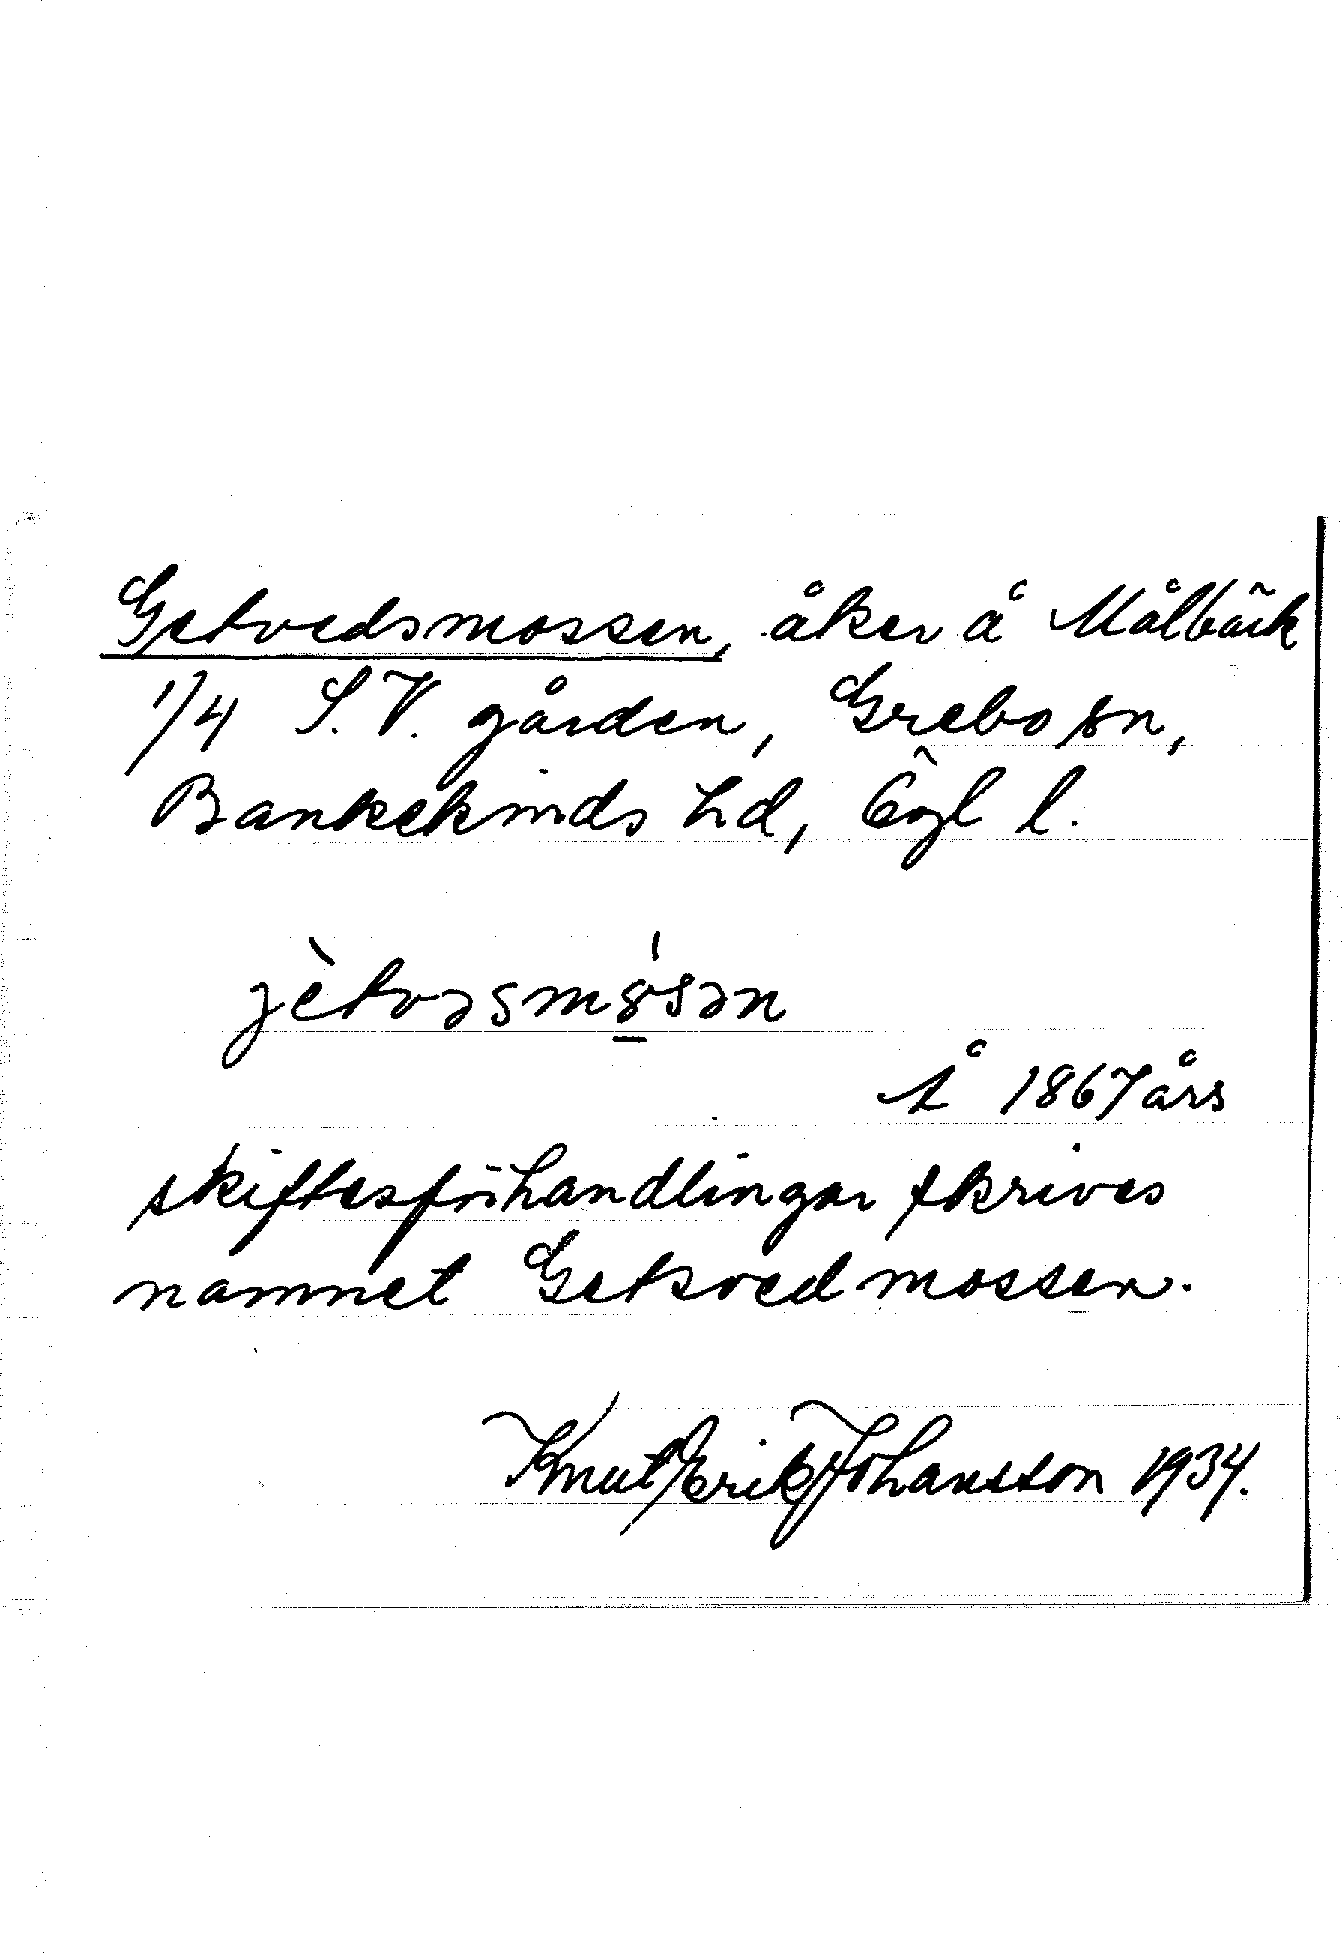 Getvedsmossen, åker å Målbäck
1/4 S.V. gården, Grebo sn,
Bankekinds hd, Ögl l.
jètvəsmȯ́sən
Å 1867 års
skiftesförhandlingar skrives
namnet Getsvedmossen.
Knut Erik Johansson 1934.